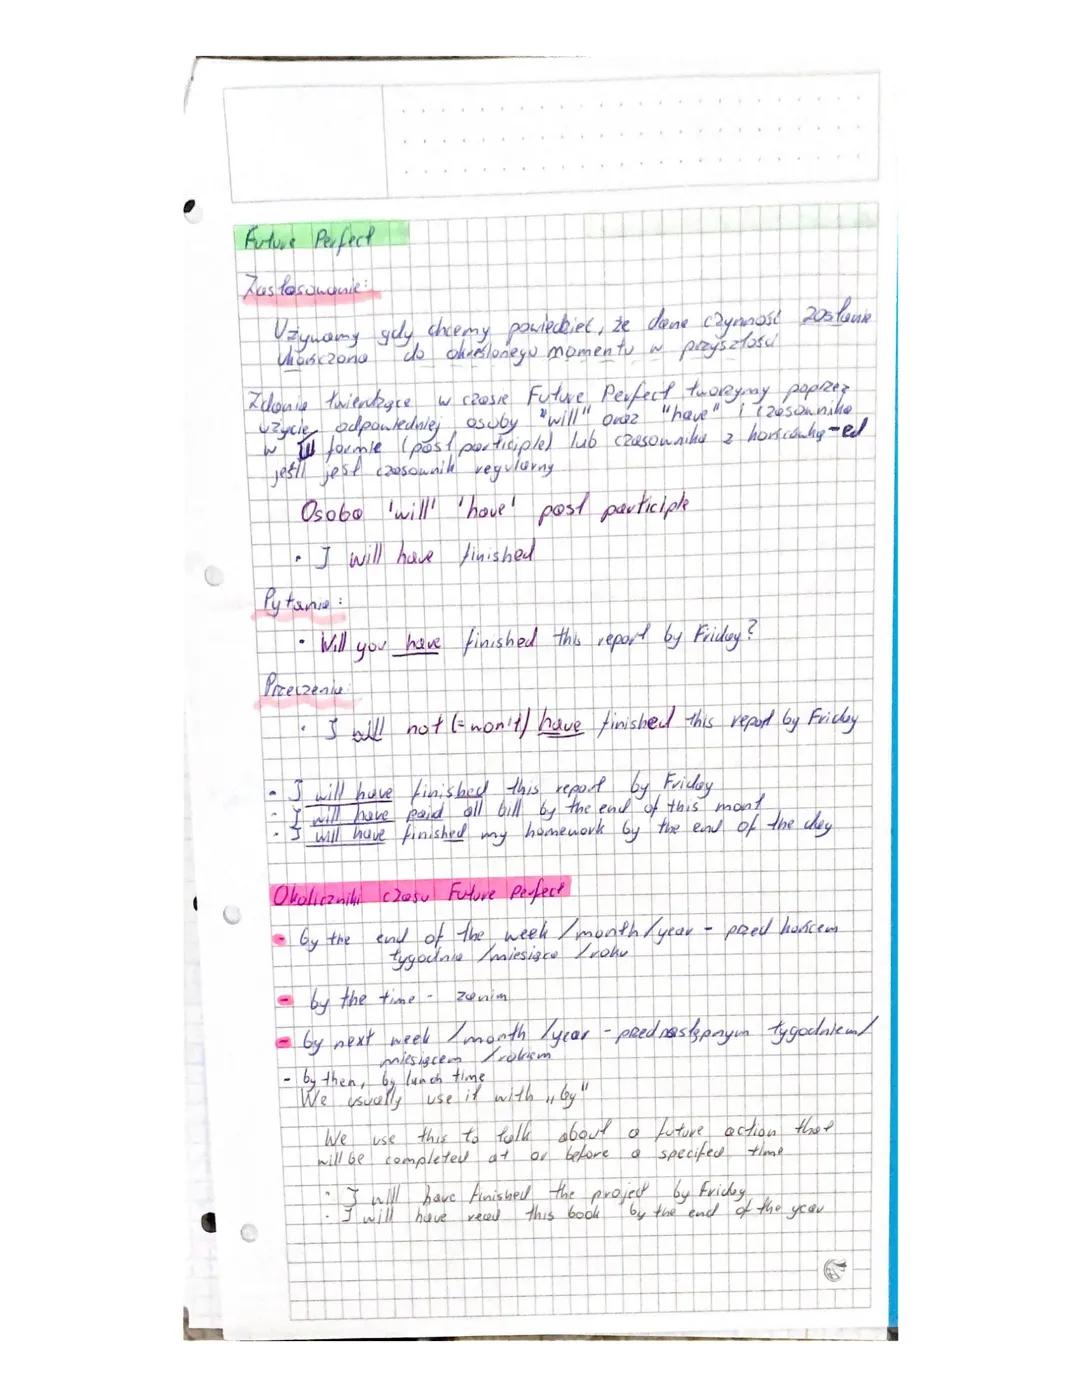 Future Perfect
Zastosowanie:
Używamy gdy chcemy powiedzieć, że dana czynność zostanie
ukończona do określonego momentu w przyszłości
Zdania twierdzące w czasie Future Perfect tworzymy poprzez
użycie odpowiedniej osoby "will" oraz "have" i czasownika
w III formie (past participle) lub czasownika z końcówką -ed
jeśli jest czasownik regularny
Osoba 'will' 'have' past participle
• I will have finished
Pytania:
• Will you have finished this report by Friday?
Przeczenia:
• I will not (=won't) have finished this report by Friday
- I will have finished this report by Friday
- I will have paid all bill by the end of this mont
- I will have finished my homework by the end of the day
Okoliczniki czasu Future Perfect
- by the end of the week / month / year - przed końcem
tygodnia / miesiąca / roku
- by the time - zanim
- by next week / month / year - przed następnym tygodniem /
miesiącem / rokiem
- by then, by lunch time
We usually use it with „by"
We use this to talk about a future action that
will be completed at or before a specifed time
• I will have finished the project by Friday
• I will have read this book by the end of the year